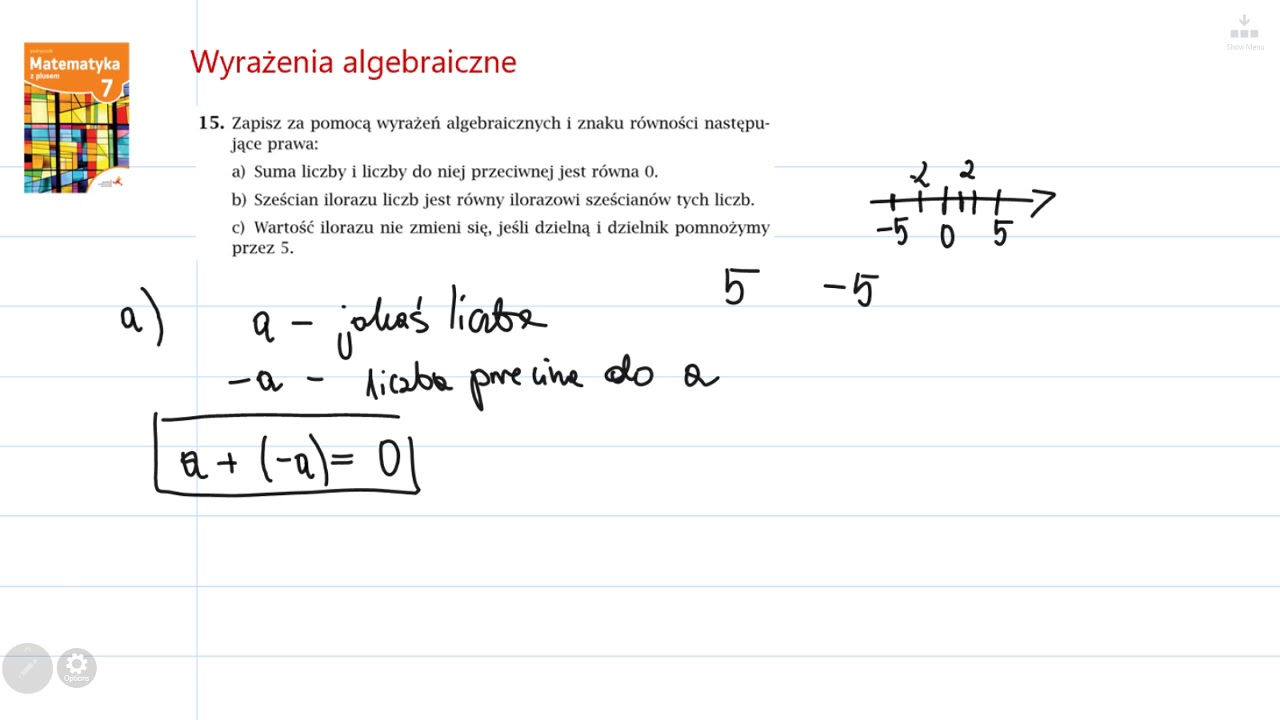 podręcznik
Matematyka
z plusem
7
Wyrażenia algebraiczne
Show Menu
15. Zapisz za pomocą wyrażeń algebraicznych i znaku równości następu-
jące prawa:
a) Suma liczby i liczby do niej przeciwnej jest równa 0.
b) Sześcian ilorazu liczb jest równy ilorazowi sześcianów tych liczb.
c) Wartość ilorazu nie zmieni się, jeśli dzielną i dzielnik pomnożymy
przez 5.
-2 2
-5 0 5
5 -5
a) a - jakaś liczba
-a - liczba do a
a + (-a) = 0
Options